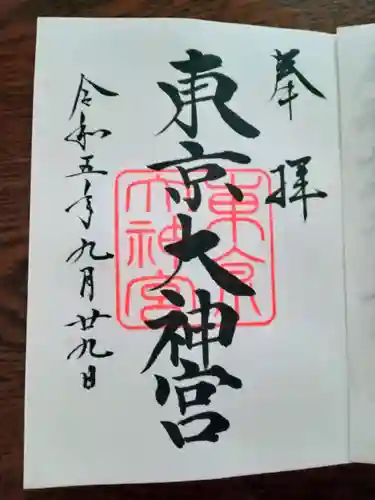 奉拝
東京大神宮
東京大神宮
令和五年九月廿九日